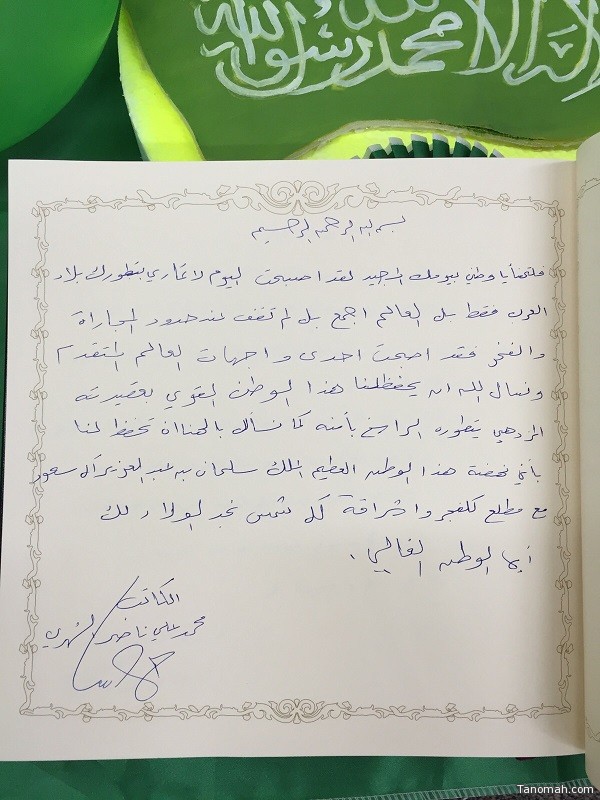 لا إله إلا الله محمد رسول الله
بسم الله الرحمن الرحيم
فلتهنأ يا وطني بيومك المجيد لقد اصبحت اليوم لا تجاري بتطورك بلاد
العرب فقط بل العالم اجمع بل لم تقف عند حدود المجاراة
والفخر فقد اصبحت احدى واجهات العالم المتقدم
ونسال الله ان يحفظ لنا هذا الوطن القوي بعقيدته
المزدهي بتطوره الراسخ بأمنه كما نسأل يا الله ان تحفظ لنا
باني نهضة هذا الوطن العظيم الملك سلمان بن عبد العزيز آل سعود
مع مطلع كل فجر واشراقة كل شمس نجدد الولاء لك
أيها الوطن الغالي .
الكاتب
محمد علي ناصر الشهري
Tanomah.com